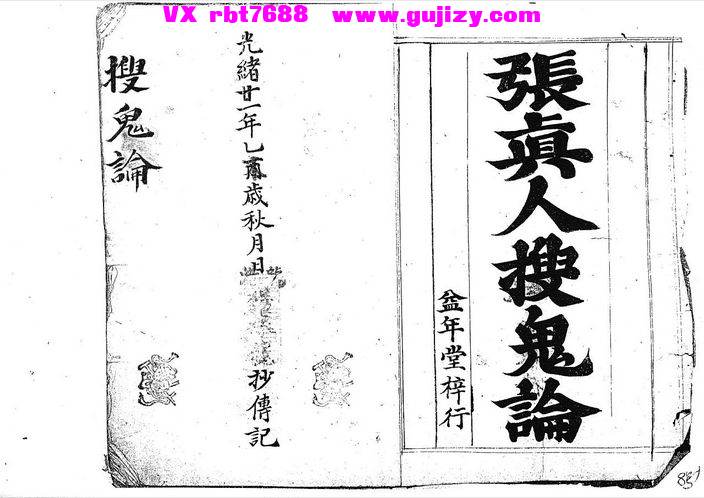 VX rbt7688 www.gujizy.com
張真人搜鬼論
益年堂梓行
光緒廿一年乙歲秋月日
抄傳記
搜鬼論